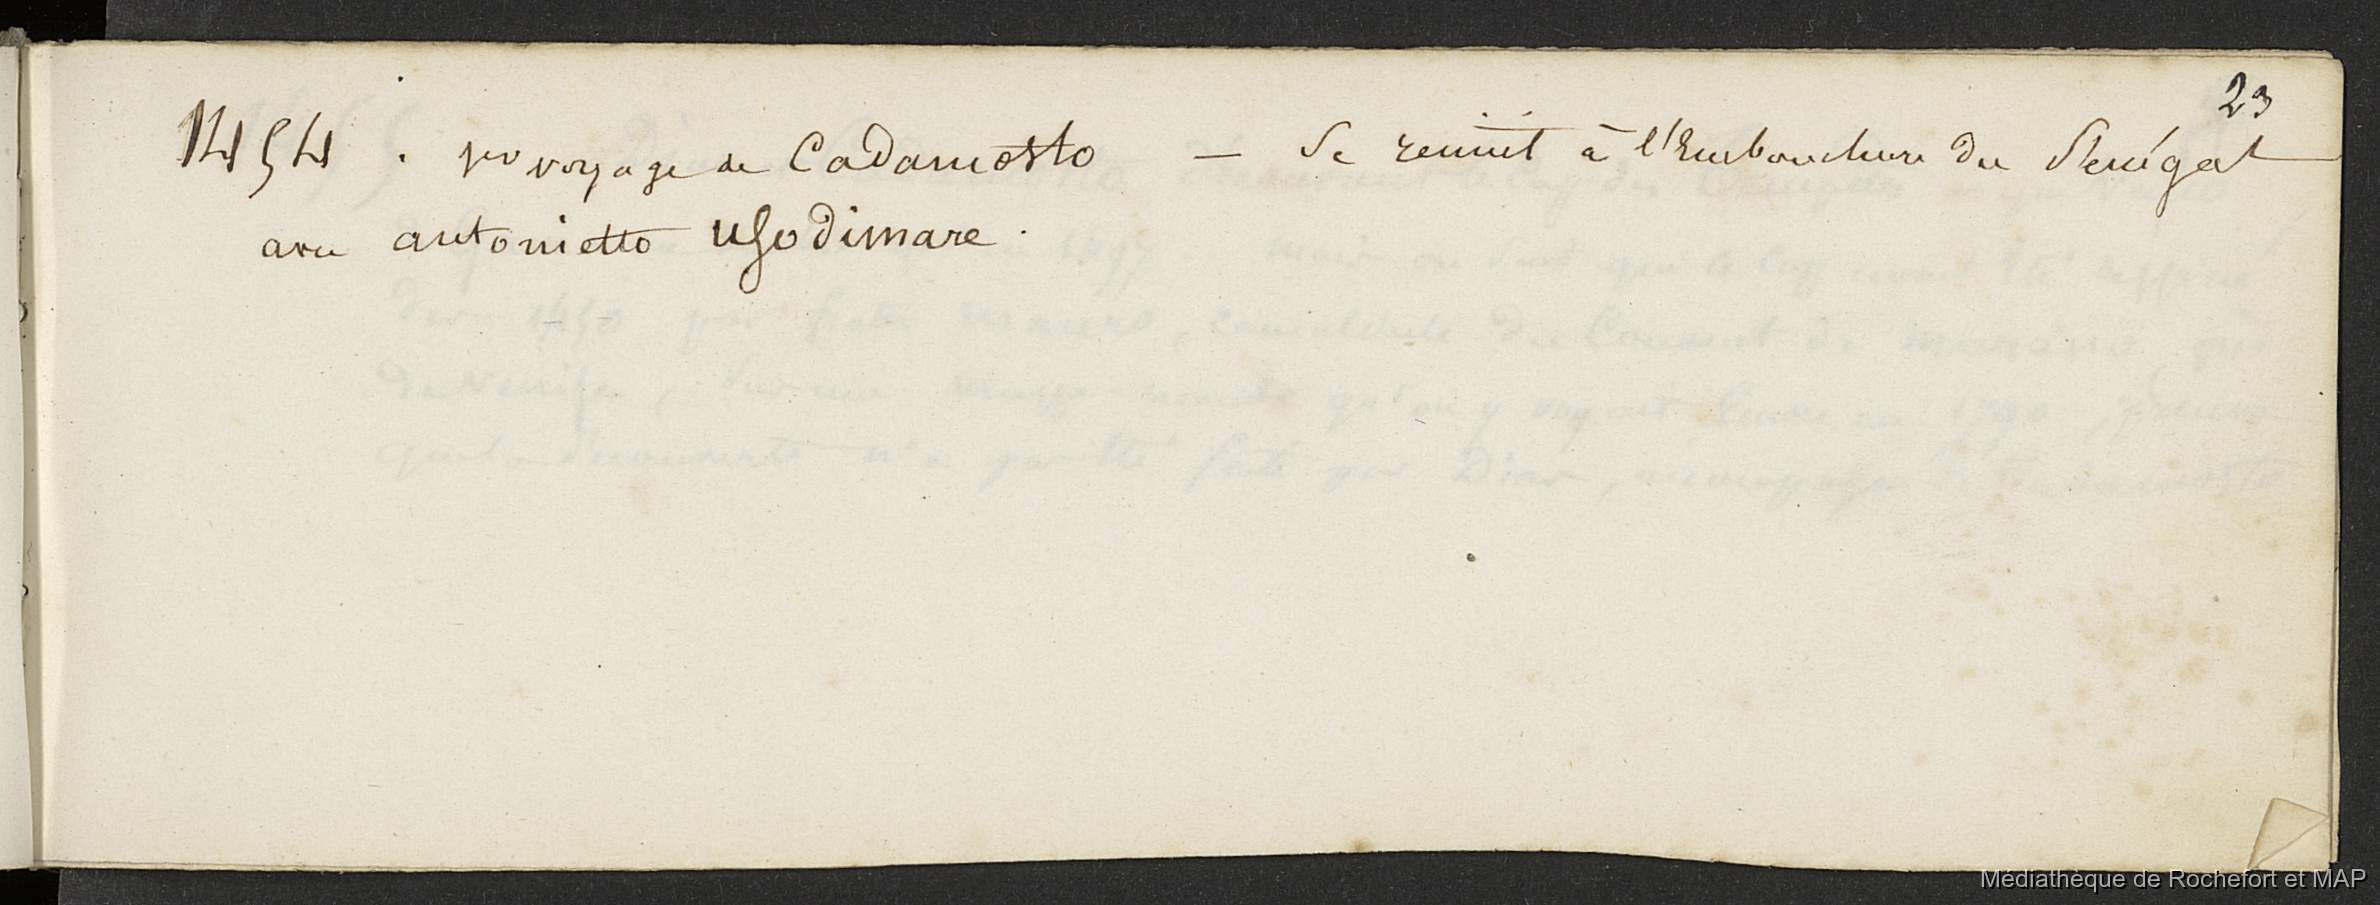 23
1454 . 1er voyage de Cadamosto — Se reunit à l'Embouchure du Sénégal
avec antonietto Usodimare .
Médiathèque de Rochefort et MAP